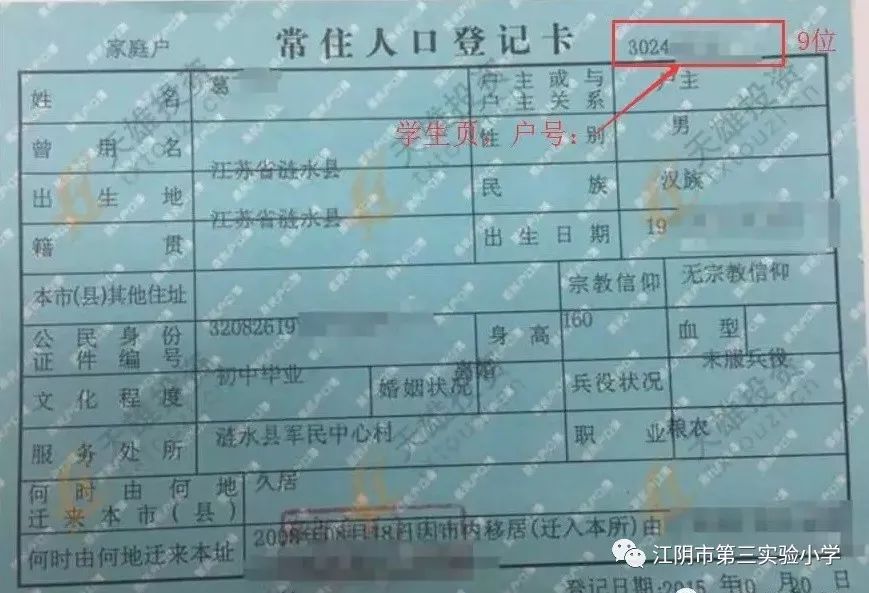 家庭户 常住人口登记卡 3024 9位
姓名 葛 户主或与户主关系 户主
学生页，户号：
曾用名 性别 男
出生地 江苏省涟水县 民族 汉族
籍贯 江苏省涟水县 出生日期 19
本市(县)其他住址 宗教信仰 无宗教信仰
公民身份证件编号 32082619 身高 160 血型
文化程度 初中毕业 婚姻状况 离婚 兵役状况 未服兵役
服务处所 涟水县军民中心村 职业 粮农
何时由何地迁来本市(县) 久居
何时由何地迁来本址 2008年08月18日因市内移居(迁入本所)由
江阴市第三实验小学
登记日期:2015年10月20日
天雄投资
txtouzi.cn